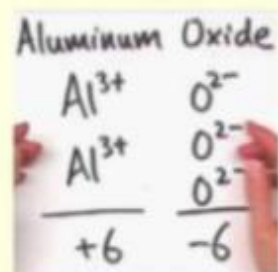 Aluminum Oxide
Al³⁺ O²⁻
Al³⁺ O²⁻
O²⁻
+6 -6